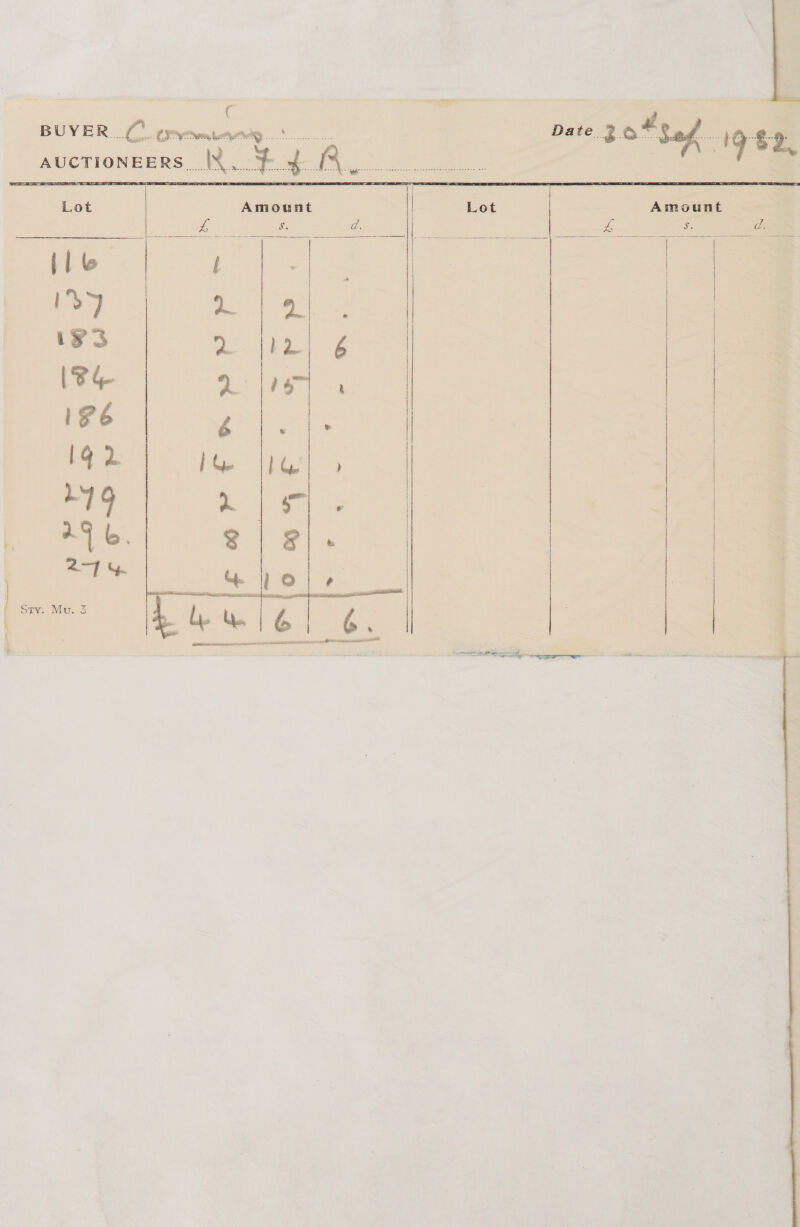 BUYER C
Date 30th Sep. 1932.
AUCTIONEERS K. F & R.
Lot Amount Lot Amount
£ s. d. £ s. d.
116 1 - -
137 2 2 .
183 2 12 6
184 2 15 .
186 6 . .
192 14 14 .
279 2 5 .
296. 8 8 .
274 4 10 .
Sty. Mu. 3
£ 44 6 6.